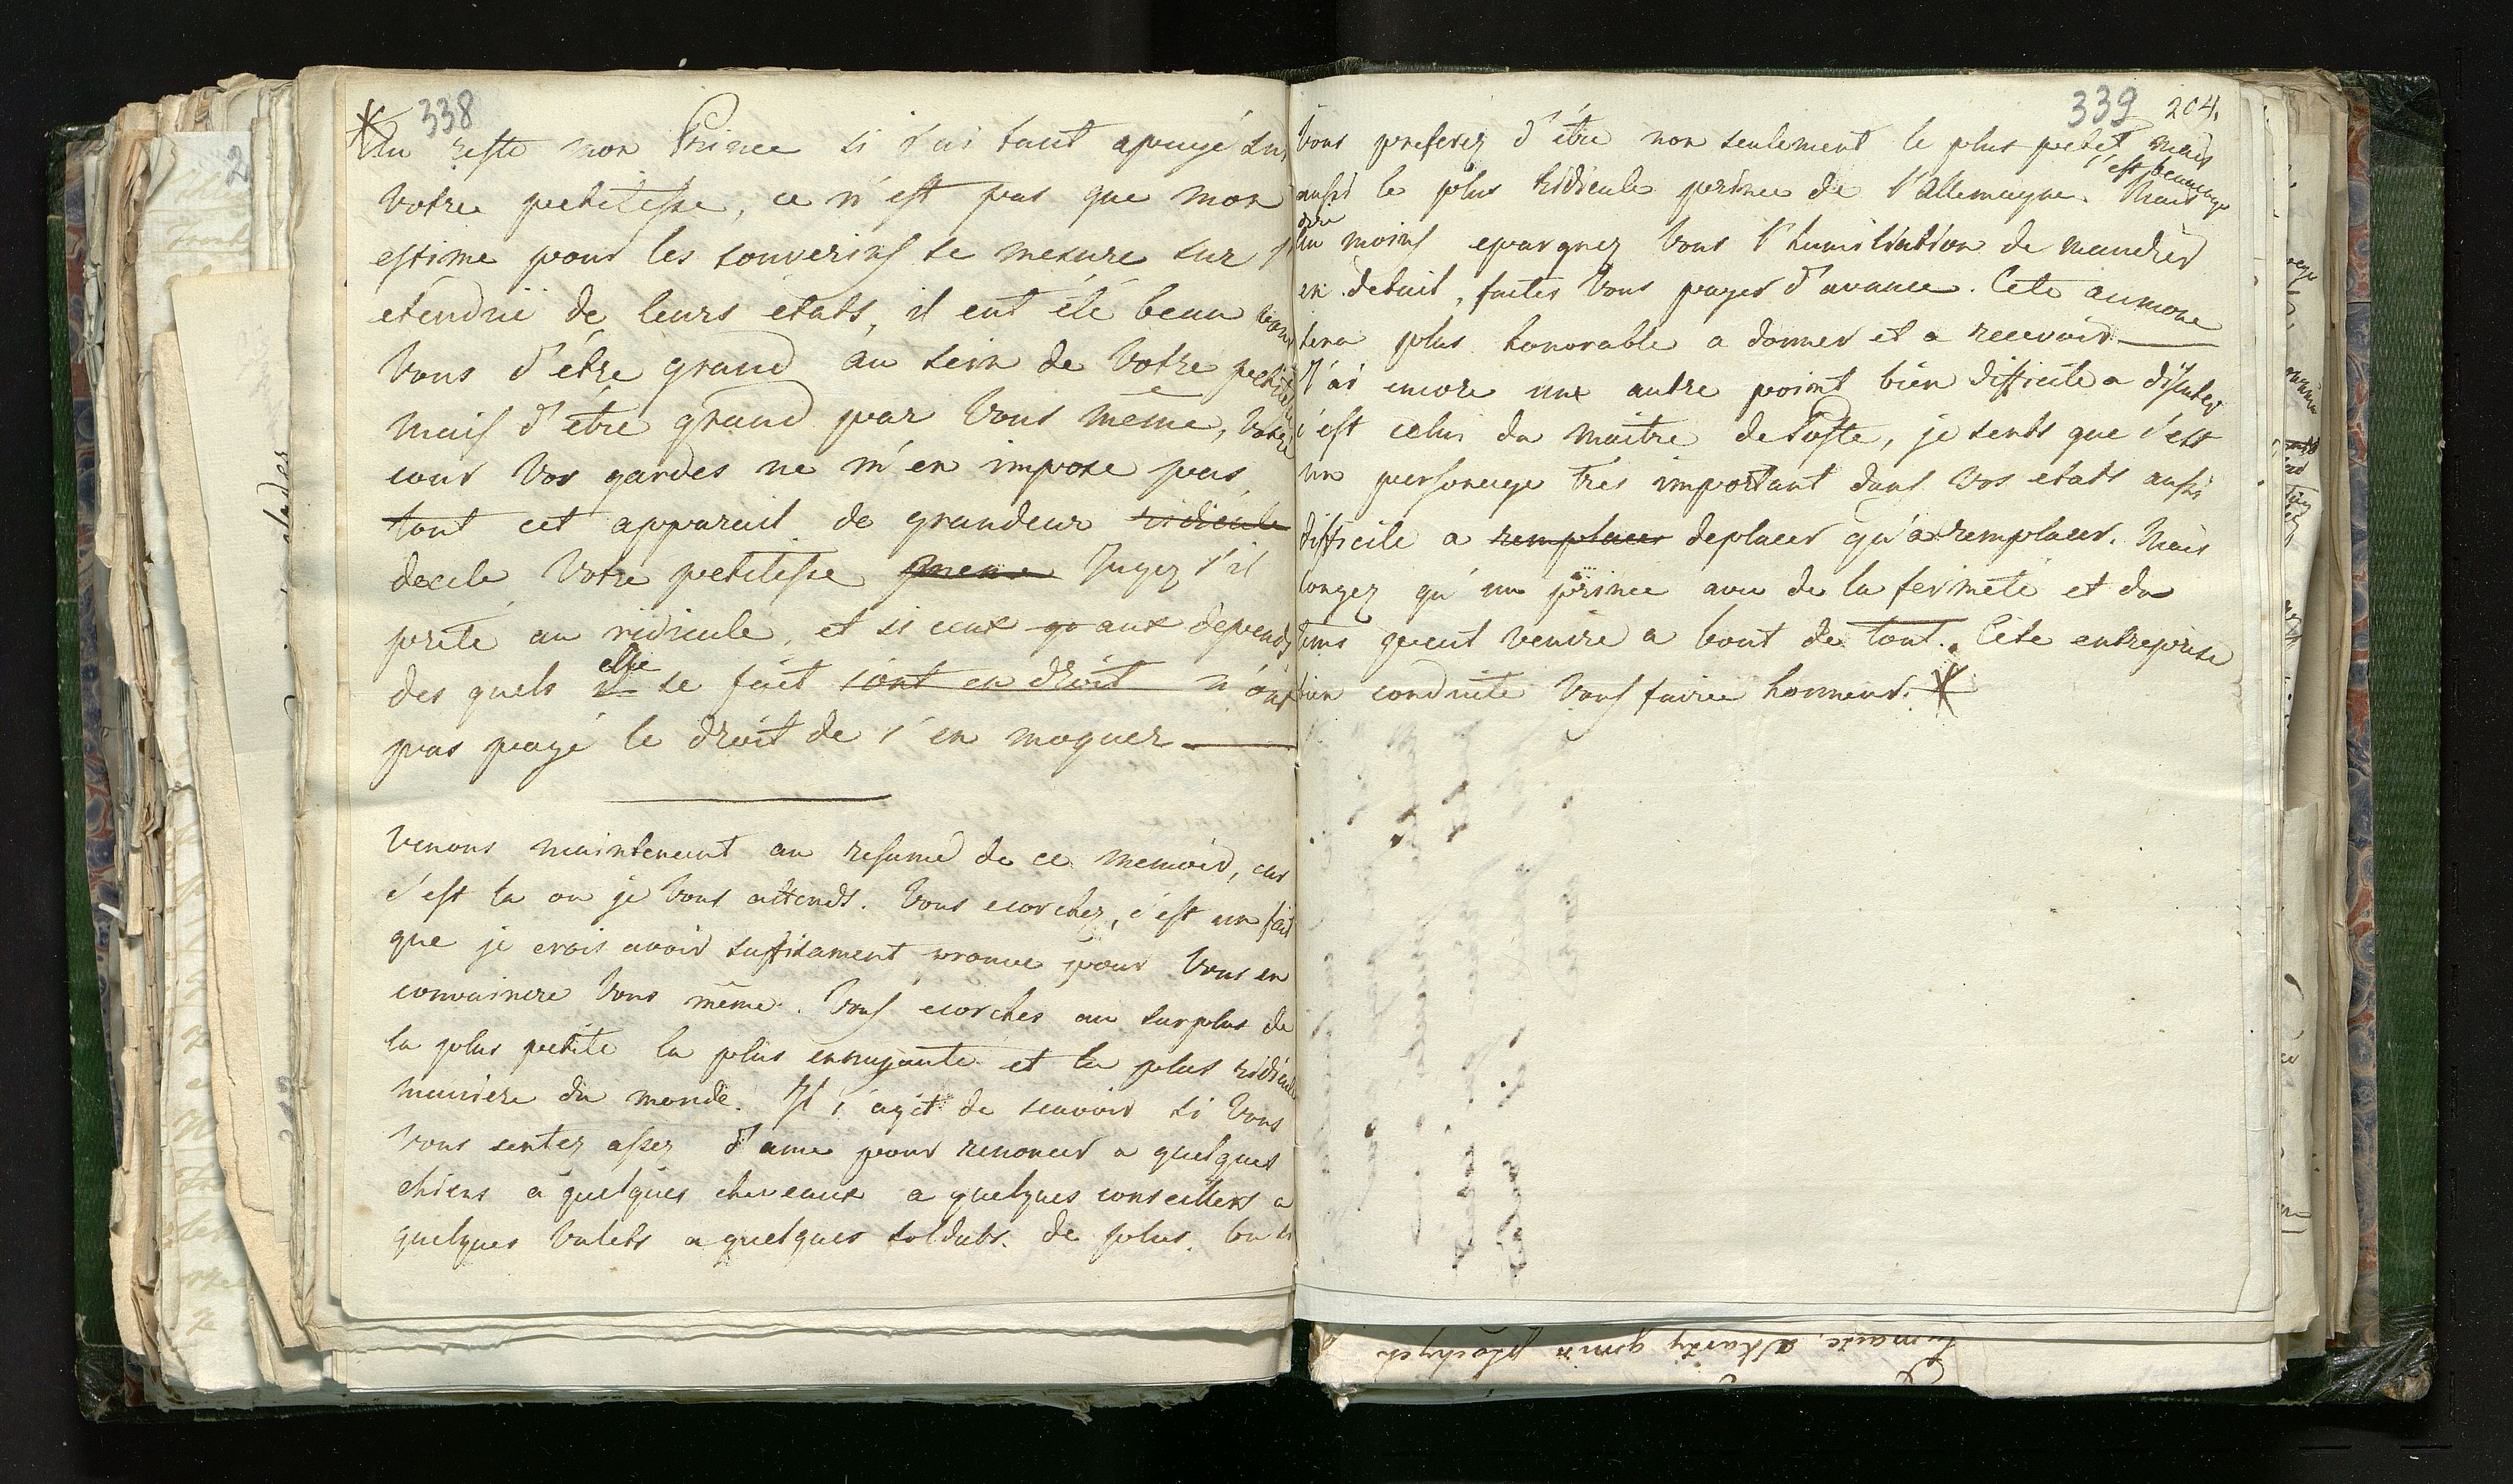 338
Au reste mon Prince si j'ai tant apuyé sur
votre petitesse, ce n'est pas que mon
estime pour les souverins se mesure sur l'
etendüe de leurs etats, il eut été beau
vous d'étre grand au sein de votre petitesse
mais d'être grand par vous même, votre
cour vos gardes ne m'en impose pas
tout cet appareil de grandeur ridicule
decele votre petitesse Jugez s'il
prete au ridicule, et si ceux qo aux depends
des quels il elle se fait sont en droit n'ont
pas payé le droit de s'en moquer
venons maintenant au resumé de ce memoir, car
c'est la ou je vous attends. Vous ecorchez, c'est un fait
que je crois avoir suffisament prouvé pour vous en
convaincre vous même. Vous ecorches au surplus de
la plus petite la plus ennuyante et la plus ridicule
maniere du monde. Il s'agit de scavoir si vous
vous sentez assez d'ame pour renoncer a quelques
chiens a quelques cheveaux a quelques conseillers a
quelques valets a quelques soldats. de plus. ou si
339 204.
vous preferez d'être non seulement le plus petit mais
aussi le plus ridicule prince de l'Allemagne. c'est beaucoup Mais
au moins epargnez vous l'humiliation de mandier
en detail, faites vous payer d'avance. Cete aumone
sera plus honorable a donner et a recevoir
J'ai encore une autre point bien difficile a disputer
c'est celui du maitre de Poste, je sents que c'est
un personage tres important dans vos etats aussi
difficile a remplacer deplacer qu'a remplacer. Mais
songez qu'un prince avec de la fermeté et du
tems peut venire a bout de tout. Cete entreprise
bien conduite vous faira honneur.